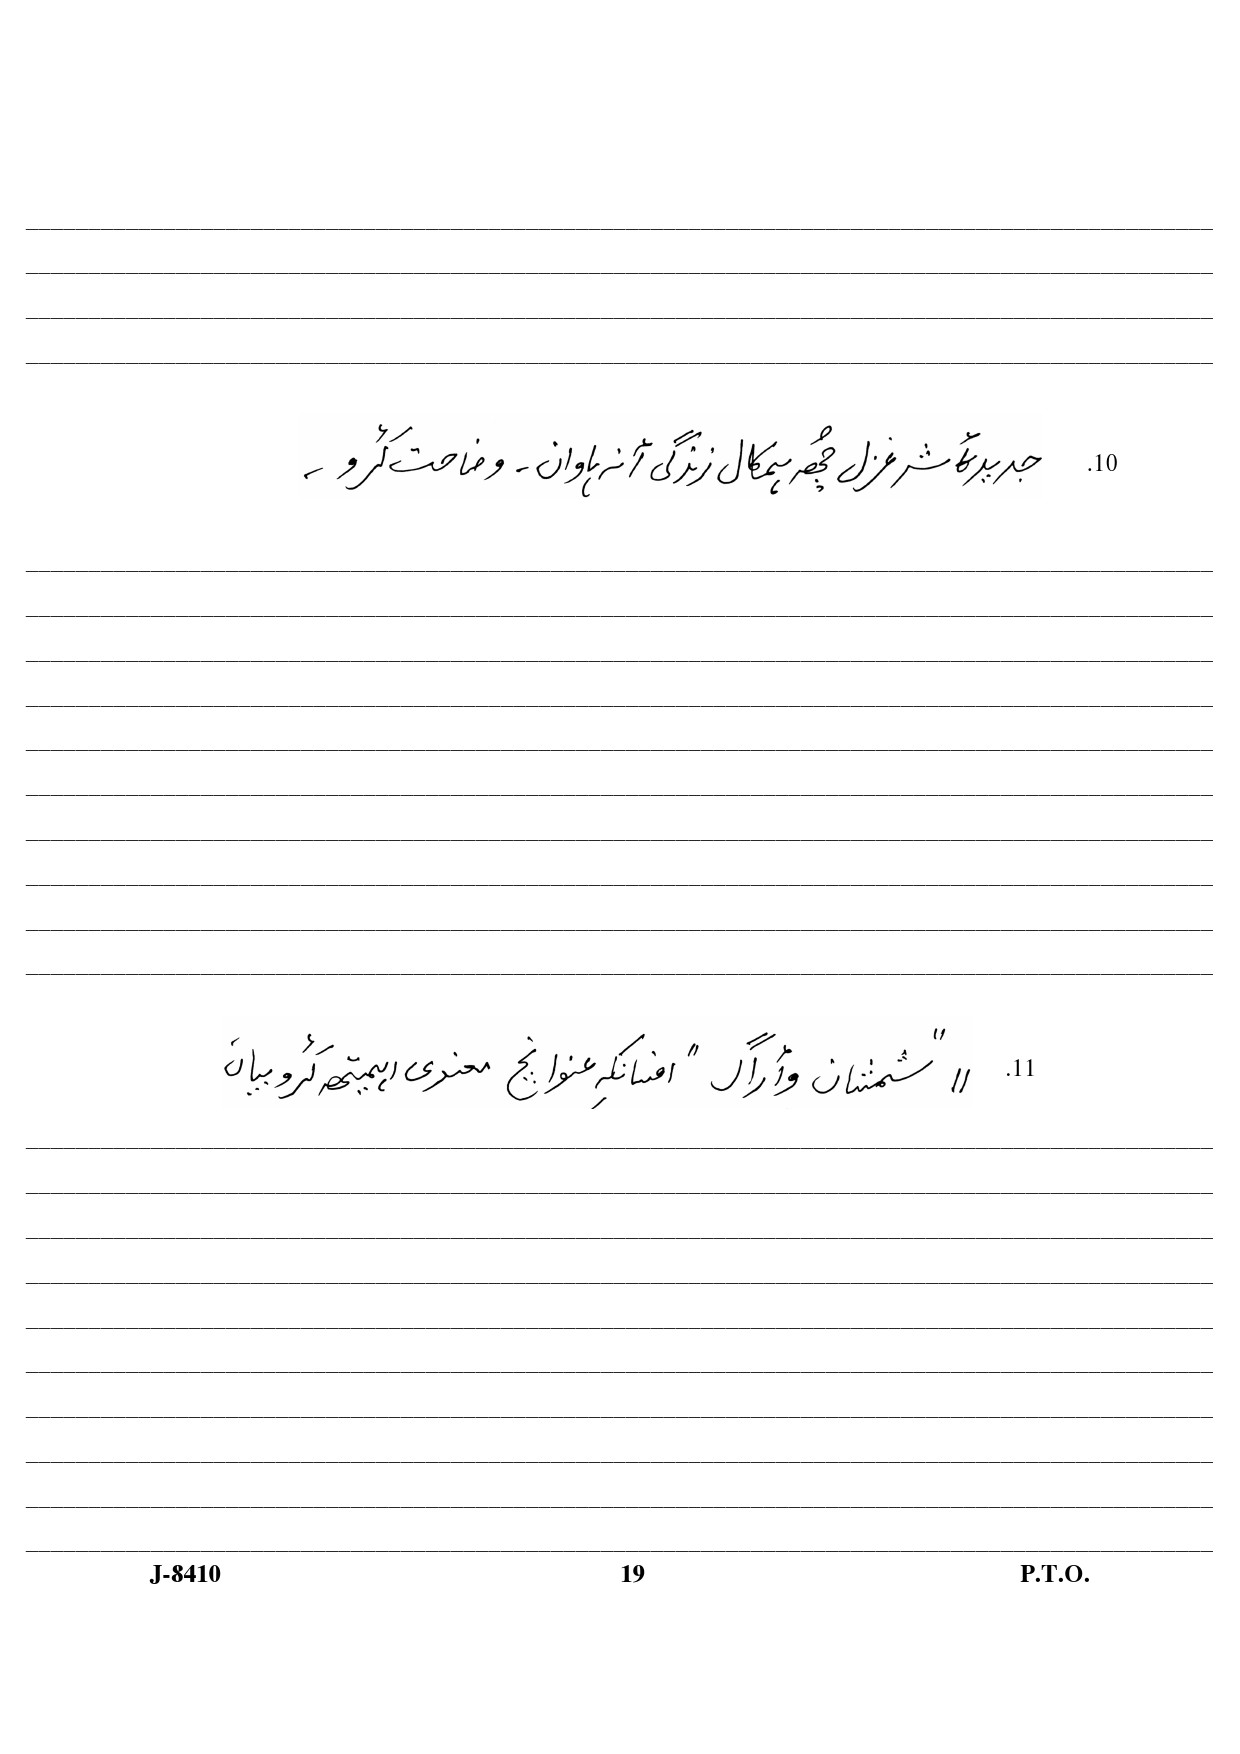 10. جدید کٲشر غزل چھُ ہمکال زندگی آنہ ہاوان ۔ وضاحت کٔرو ۔
11. " شمشان وٲراگ " افسانکہِ عنوانچ معنوی اہمیتھ کٔرو بیان
J-8410 19 P.T.O.